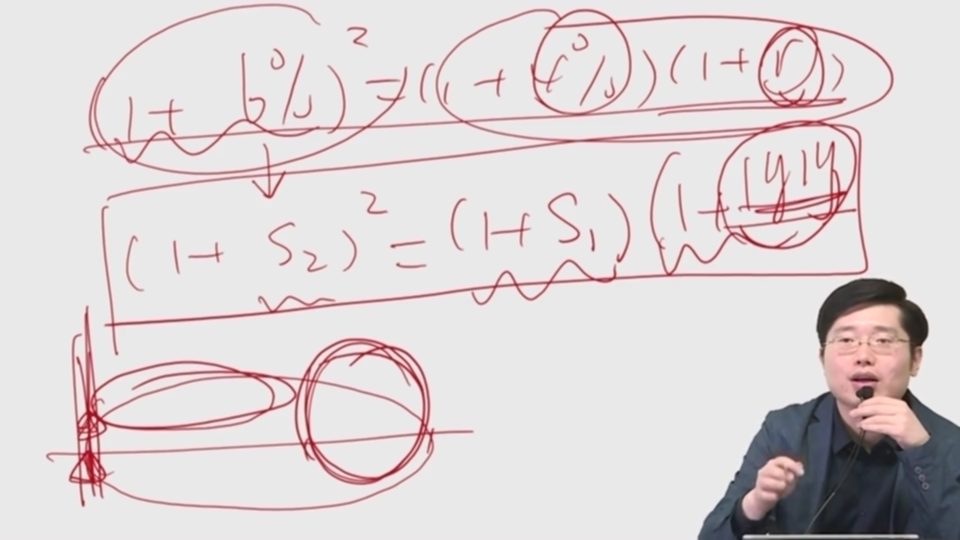 (1+ 6%)² = (1 + 4%)(1+ r)
(1+ S₂)² = (1+S₁)(1+1y1y)